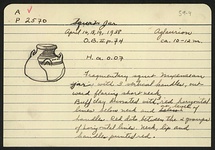 A
P 2570
Squat Jar
April 12, 13, 1938
Agleurion
O.B. II p. 74
ca. 10-12 m.
H. a. 0.07
Fragmentary squat Mycenaean
jar with 3 vertical handles, out-
ward flaring short neck.
Buff clay decorated with red horizontal
lines below neck and between
handles. Red dots between the 2 groups
of horizontal lines. Neck, lip and
handles painted red.